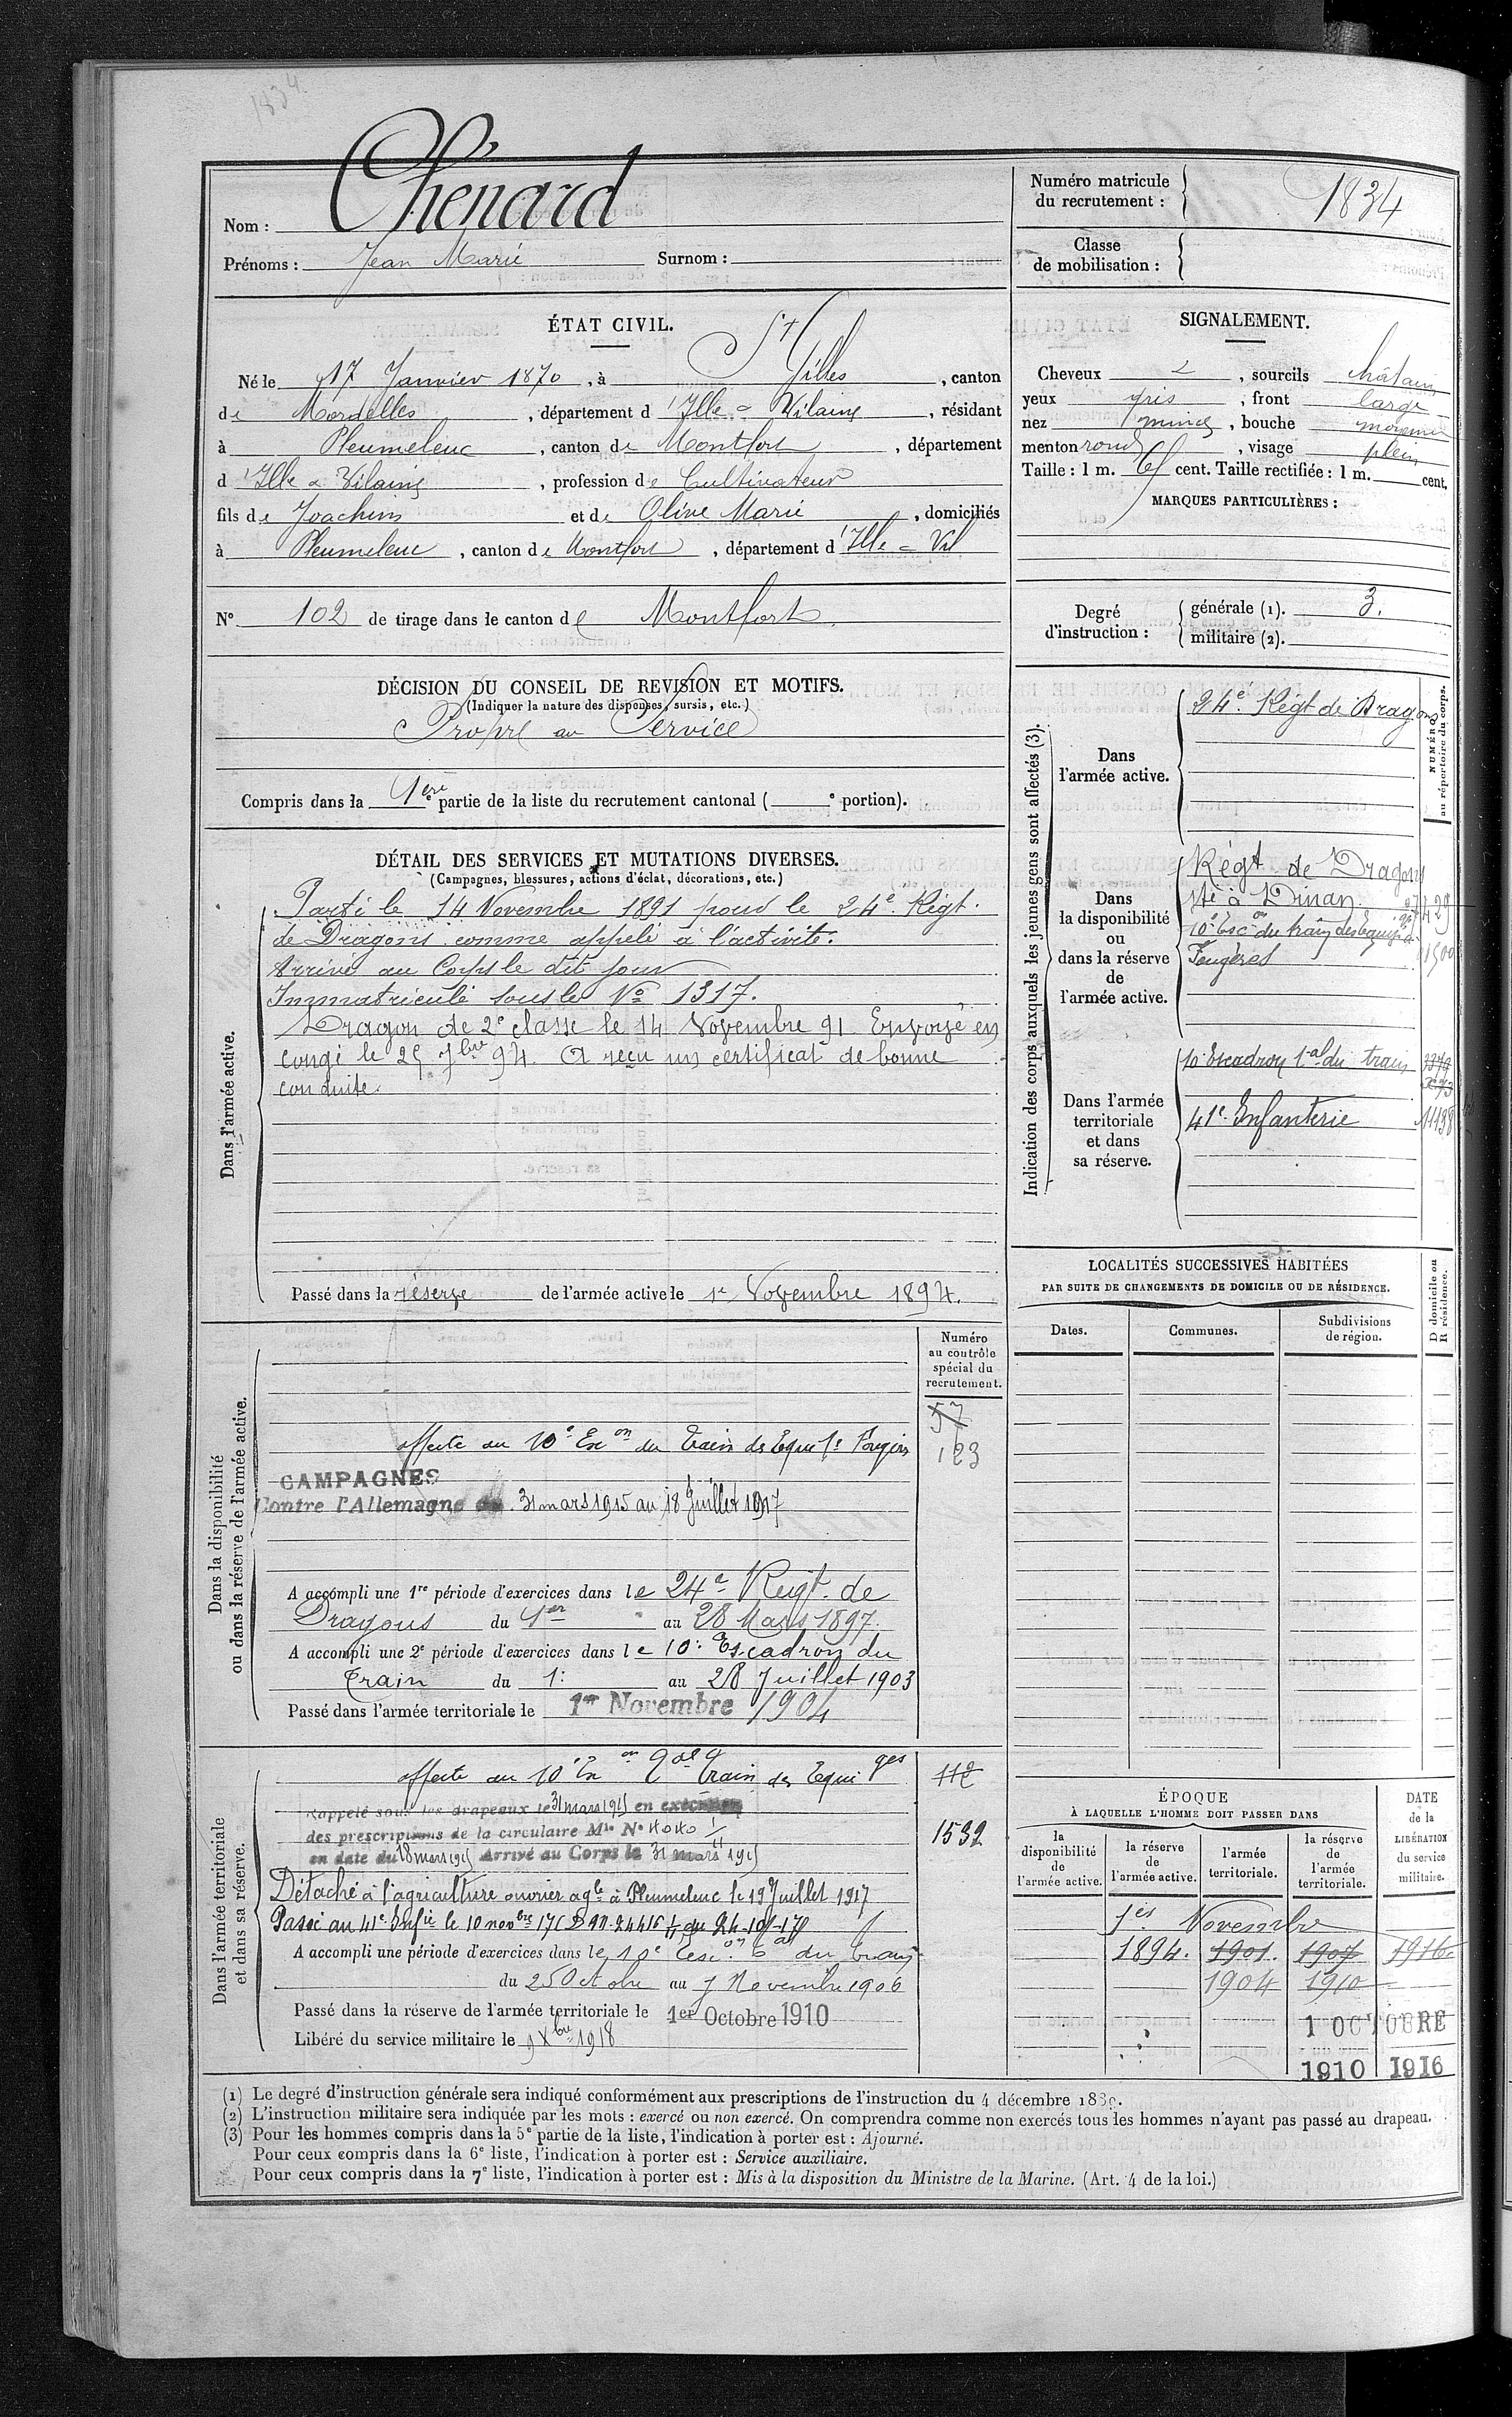 1834.
Nom : Chénard
Prénoms : Jean Marie Surnom :
Numéro matricule du recrutement : 1834
Classe de mobilisation :
ÉTAT CIVIL.
Né le 17 Janvier 1870, à St Gilles, canton
de Mordelles, département d'Ille & Vilaine, résidant
à Pleumeleuc, canton de Montfort, département
d'Ille & Vilaine, profession de Cultivateur
fils de Joachim et de Olive Marie, domiciliés
à Pleumeleuc, canton de Montfort, département d'Ille & Vil
N° 102 de tirage dans le canton de Montfort.
SIGNALEMENT.
Cheveux , sourcils châtains
yeux gris, front large
nez mince, bouche moyenne
menton rond, visage plein
Taille : 1 m. 61 cent. Taille rectifiée : 1 m. cent.
MARQUES PARTICULIÈRES :
Degré d'instruction : générale (1). 3.
militaire (2).
DÉCISION DU CONSEIL DE REVISION ET MOTIFS.
(Indiquer la nature des dispenses, sursis, etc.)
Propre au Service
Compris dans la 1ère partie de la liste du recrutement cantonal ( e portion).
DÉTAIL DES SERVICES ET MUTATIONS DIVERSES.
(Campagnes, blessures, actions d'éclat, décorations, etc.)
Dans l'armée active.
Parti le 14 Novembre 1891 pour le 24e Régt.
de Dragons comme appelé à l'activité.
Arrivé au Corps le dit jour
Immatriculé sous le No 1317.
Dragon de 2e classe le 14 Novembre 91. Envoyé en
congé le 25 7bre 94. A reçu un certificat de bonne
conduite.
Passé dans la réserve de l'armée active le 1e Novembre 1894.
Indication des corps auxquels les jeunes gens sont affectés (3).
NUMÉRO au répertoire du corps.
Dans l'armée active.
24e Régt de Dragons
Dans la disponibilité ou dans la réserve de l'armée active.
Régt de Dragons
Sté à Dinan
10e Escon du train des Equip. à
Fougères
1500
Dans l'armée territoriale et dans sa réserve.
10e Escadron tal du train
41e Infanterie 11198
LOCALITÉS SUCCESSIVES HABITÉES
PAR SUITE DE CHANGEMENTS DE DOMICILE OU DE RÉSIDENCE.
Dates. Communes. Subdivisions de région. D domicile ou R résidence.
Dans la disponibilité ou dans la réserve de l'armée active.
Numéro au contrôle spécial du recrutement.
57
affecté au 10e Escon du Train des Equi Fougères 123
CAMPAGNES
Contre l'Allemagne du 31 mars 1915 au 18 Juillet 1917
A accompli une 1re période d'exercices dans le 24e Régt. de
Dragons du 1er au 28 Mars 1897.
A accompli une 2e période d'exercices dans le 10e Escadron du
Train du 1er au 28 Juillet 1903
Passé dans l'armée territoriale le 1er Novembre 1904
Dans l'armée territoriale et dans sa réserve.
affecté au 10e Escon tal train des Equiges 112
Rappelé sous les drapeaux le 31 mars 1915 en exécution
des prescriptions de la circulaire Mlle N°
1532
en date du 18 mars 1915 Arrivé au Corps le 31 mars 1915
Détaché à l'agriculture ouvrier agle à Pleumeleuc le 19 Juillet 1917
Passé au 41e Infie le 10 novbre 17 du 24-10-17
A accompli une période d'exercices dans le 10e Escon tal du train
du 25 Octobre au 7 Novembre 1906
Passé dans la réserve de l'armée territoriale le 1er Octobre 1910
Libéré du service militaire le 9 Xbre 1918
ÉPOQUE
À LAQUELLE L'HOMME DOIT PASSER DANS
la disponibilité de l'armée active. la réserve de l'armée active. l'armée territoriale. la réserve de l'armée territoriale. DATE de la LIBÉRATION du service militaire.
1er Novembre
1894. 1901. 1907 1916
1904 1910
1 OCTOBRE
1910 1916
(1) Le degré d'instruction générale sera indiqué conformément aux prescriptions de l'instruction du 4 décembre 1889.
(2) L'instruction militaire sera indiquée par les mots : exercé ou non exercé. On comprendra comme non exercés tous les hommes n'ayant pas passé au drapeau.
(3) Pour les hommes compris dans la 5e partie de la liste, l'indication à porter est : Ajourné.
Pour ceux compris dans la 6e liste, l'indication à porter est : Service auxiliaire.
Pour ceux compris dans la 7e liste, l'indication à porter est : Mis à la disposition du Ministre de la Marine. (Art. 4 de la loi.)